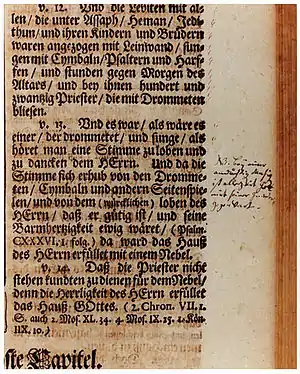 v. 12. Und die Leviten mit al-
len / die unter Assaph / Heman / Jedi-
thun / und ihren Kindern und Brüdern
waren angezogen mit Leinwand / sun-
gen mit Cymbaln / Psaltern und Harf-
fen / und stunden gegen Morgen des
Altars / und bey ihnen hundert und
zwantzig Priester / die mit Drommeten
bliesen.
v. 13. Und es war / als wäre es
einer / der drommetet / und sunge / als
höret man eine Stimme zu loben und
zu dancken dem HErrn. Und da die
Stimme sich erhub von den Dromme-
ten / Cymbaln und andern Seitenspie-
len / und von dem (würcklichen) loben des
HErrn / daß er gütig ist / und seine
Barmhertzigkeit ewig wäret / (Psalm.
CXXXVI, 1. folg.) da ward das Hauß
des HErrn erfüllet mit einem Nebel.
v. 14. Daß die Priester nicht
stehen kundten zu dienen für dem Nebel /
denn die Herrligkeit des HErrn erfüllet
das Hauß GOttes. (2. Chron. VII, 1.
S. auch 2. Mos. XL. 34. 4. Mos. IX. 15. 1. Kön.
IIX, 10.)
ste Capitel.
NB.